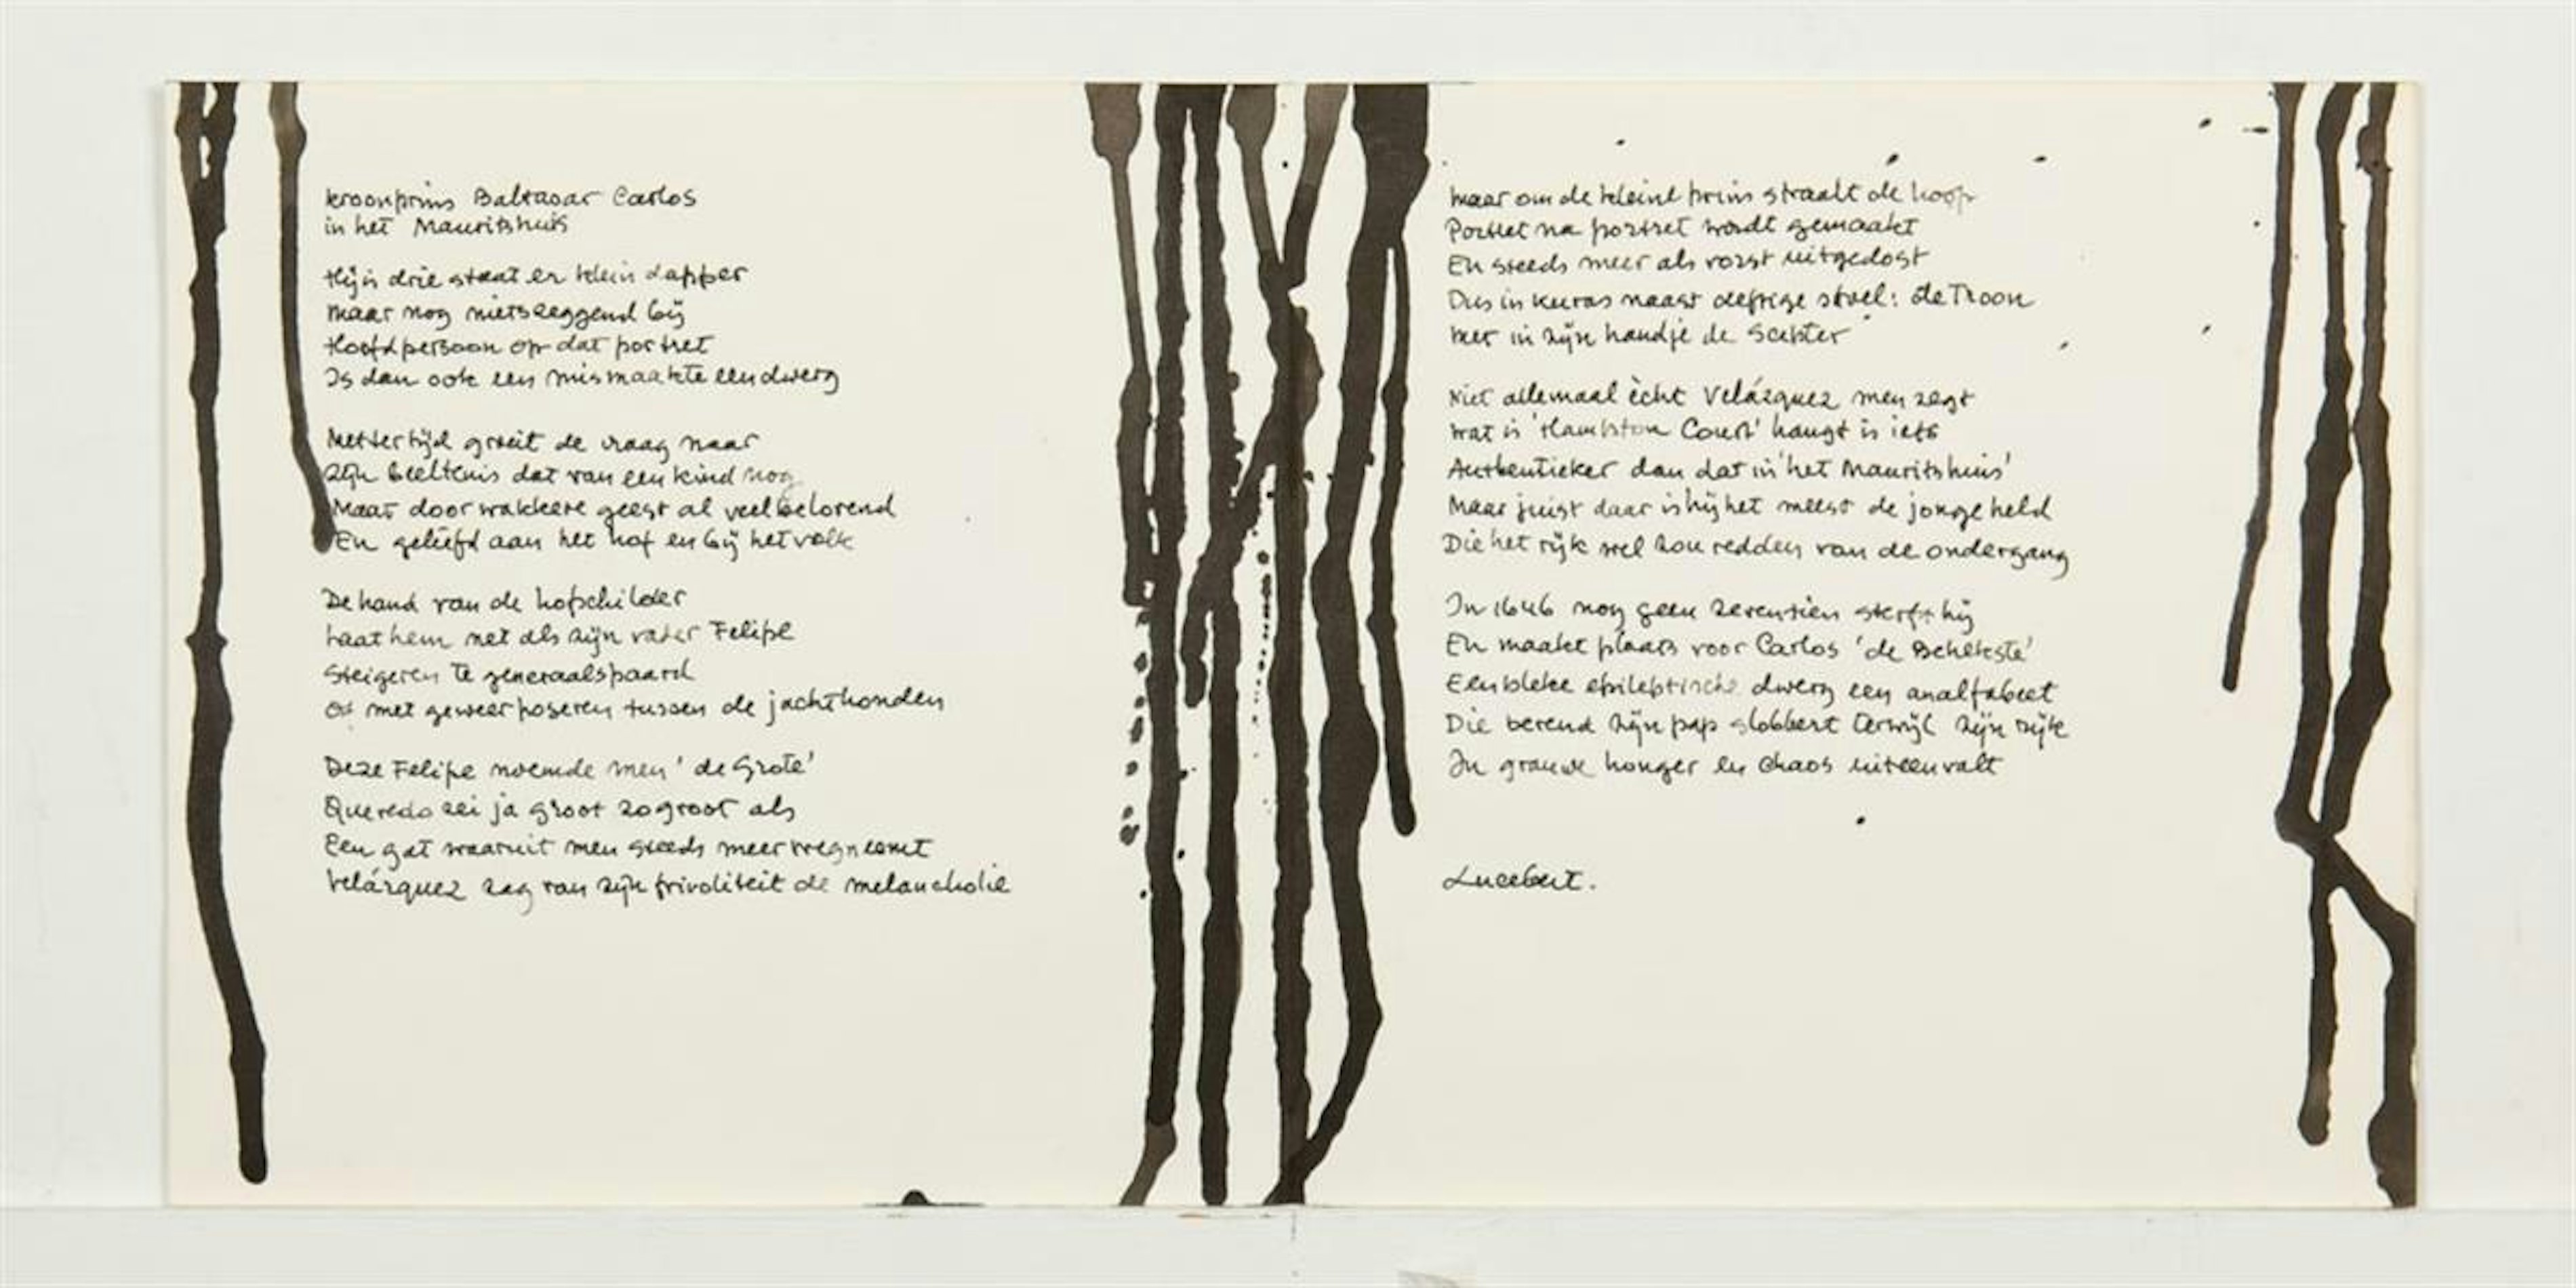 kroonprins Baltasar Carlos
in het Mauritshuis
Hij is drie staat er klein dapper
maar nog nietszeggend bij
Hoofdpersoon op dat portret
Is dan ook een mismaakte een dwerg
Mettertijd groeit de vraag naar
Zijn beeltenis dat van een kind nog
Maar door wakkere geest al veelbelovend
En geliefd aan het hof en bij het volk
De hand van de hofschilder
Laat hem net als zijn vader Felipe
Steigeren te generaalspaard
Of met geweer poseren tussen de jachthonden
Deze Felipe noemde men 'de Grote'
Quevedo zei ja groot zo groot als
Een gat waaruit men steeds meer wegneemt
Velázquez zag van zijn frivoliteit de melancholie
Maar om de kleine prins straalt de hoop
Portret na portret wordt gemaakt
En steeds meer als vorst uitgedost
Dus in kuras naast deftige stoel: de Troon
Met in zijn handje de Scepter
Niet allemaal ècht Velázquez men zegt
Wat in 'Hampton Court' hangt is iets
Authentieker dan dat in 'het Mauritshuis'
Maar juist daar is hij het meest de jonge held
Die het rijk wel zou redden van de ondergang
In 1646 nog geen zeventien sterft hij
En maakt plaats voor Carlos 'de Behekste'
Een bleke epileptische dwerg een analfabeet
Die bevend zijn pap slobbert terwijl zijn rijk
In grauwe honger en chaos uiteenvalt
Lucebert.